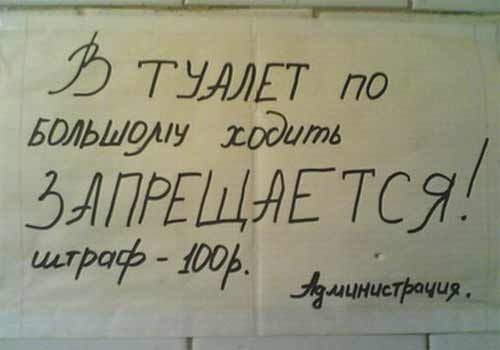 В ТУАЛЕТ ПО
БОЛЬШОМУ ходить
ЗАПРЕЩАЕТСЯ!
штраф - 100р.
Администрация.